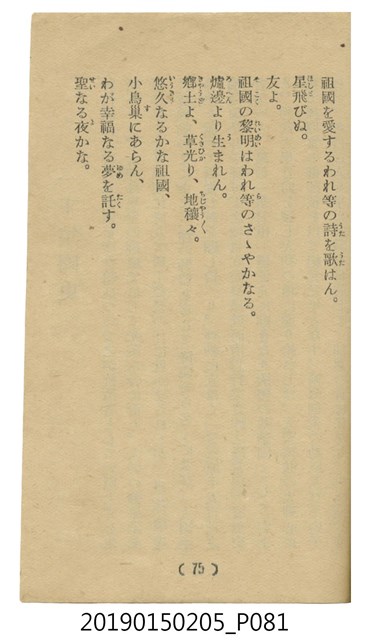 祖國を愛するわれ等の詩を歌はん。
星飛びぬ。
友よ。
祖國の黎明はわれ等のさゝやかなる。
爐邊より生まれん。
鄕土よ、草光り、地穰々。
悠久なるかな祖國、
小鳥巢にあらん、
わが幸福なる夢を託す。
聖なる夜かな。
( 75 )
20190150205_P081